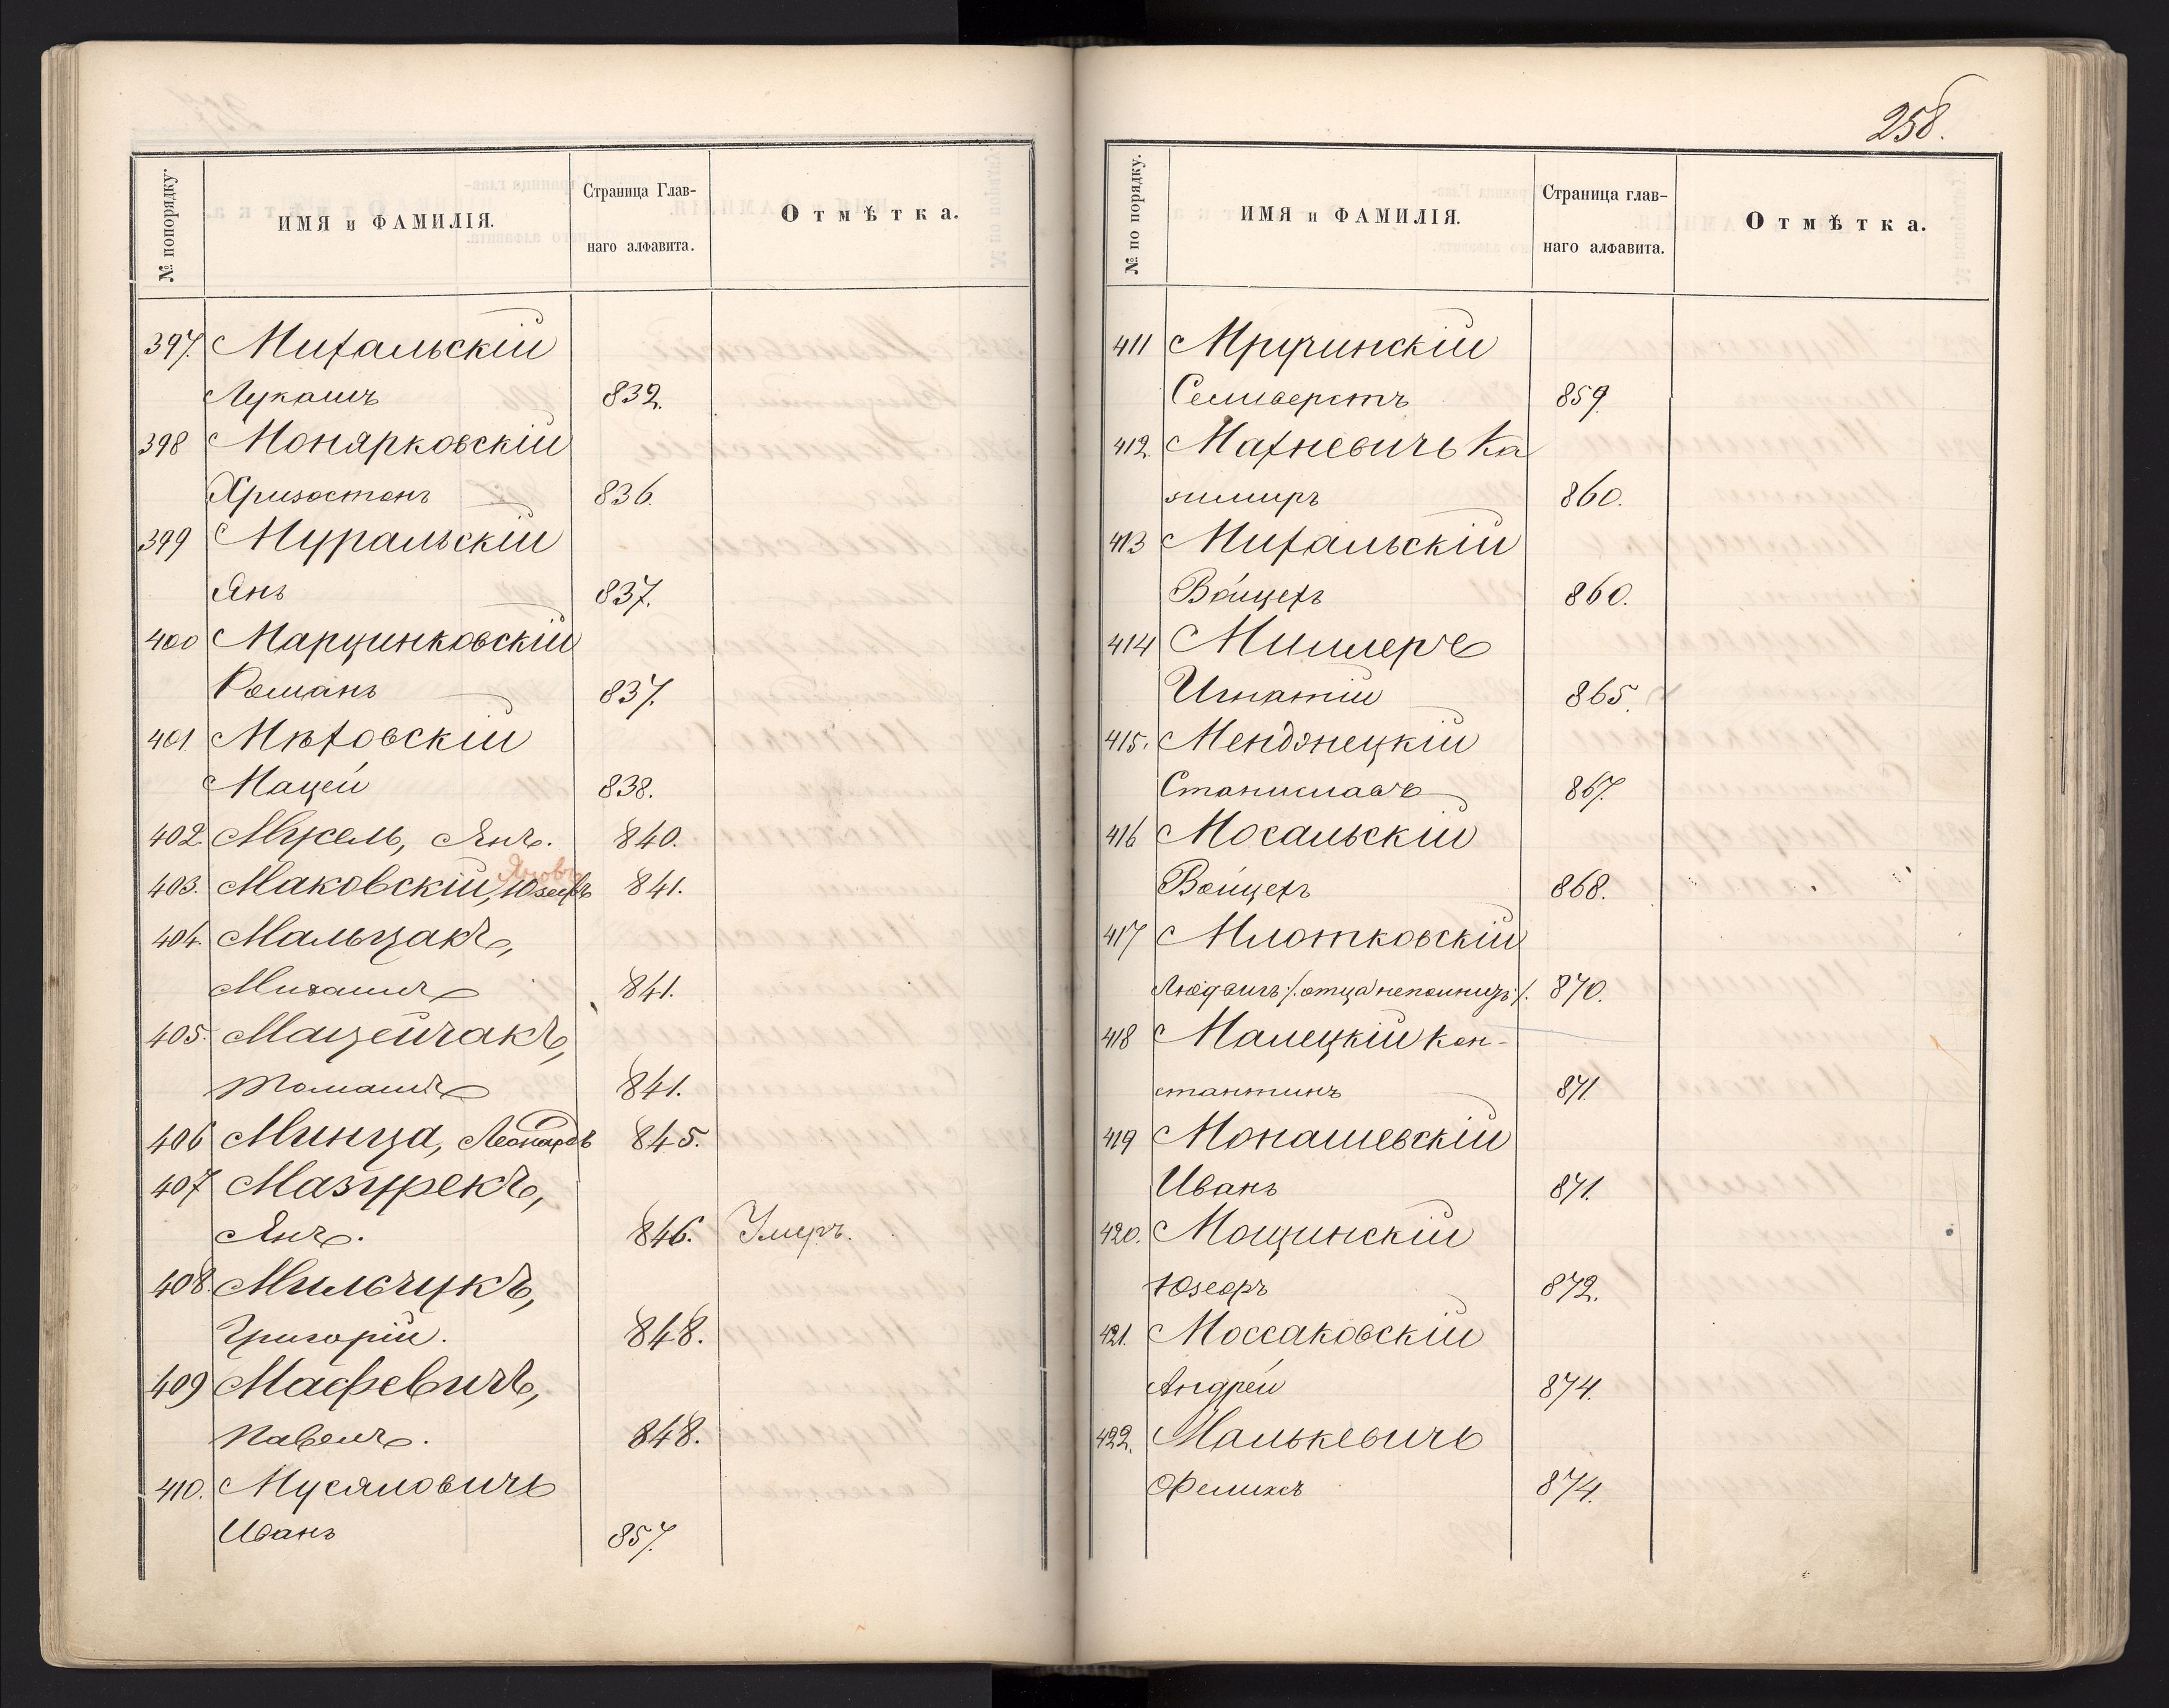 258.
№ попорядку.
ИМЯ и ФАМИЛІЯ.
Страница Глав-
наго алфавита.
Отмѣтка.
397. Михальскій
Лукашъ 832.
398 Монярковскій
Хризостомъ 836.
399 Муральскій
Янъ 837.
400 Марцинковскій
Романъ 837.
401. Мѣховскій
Мацей 838.
402. Мусель, Янъ. 840.
Яновъ
403. Маковскій, Юзефъ 841.
404. Мальцакъ,
Михаилъ 841.
405. Мацейчакъ,
Томашъ 841.
406 Минца, Леонардъ 845.
407 Мазурекъ,
Янъ. 846. Умеръ.
408. Мильчукъ,
Григорій. 848.
409 Мафевичъ,
Павелъ. 848.
410. Мусяловичъ
Иванъ 857.
№ по порядку.
ИМЯ и ФАМИЛІЯ.
Страница глав-
наго алфавита.
Отмѣтка.
411 Мручинскій
Селиверстъ 859.
412. Махневичъ Ка
зимиръ 860.
413 Михальскій
Войцехъ 860.
414 Миллеръ
Игнатій 865.
415. Мендзнецкій
Станиславъ 867.
416 Мосальскій
Войцехъ 868.
417 Млотковскій
Людвигъ /. отца непомнитъ /. 870.
418 Малецкій Кон-
стантинъ 871.
419 Монашевскій
Иванъ 871.
420. Мощинскій
Юзефъ 872.
421. Моссаковскій
Андрей 874.
422. Малькевичъ
Феликсъ 874.